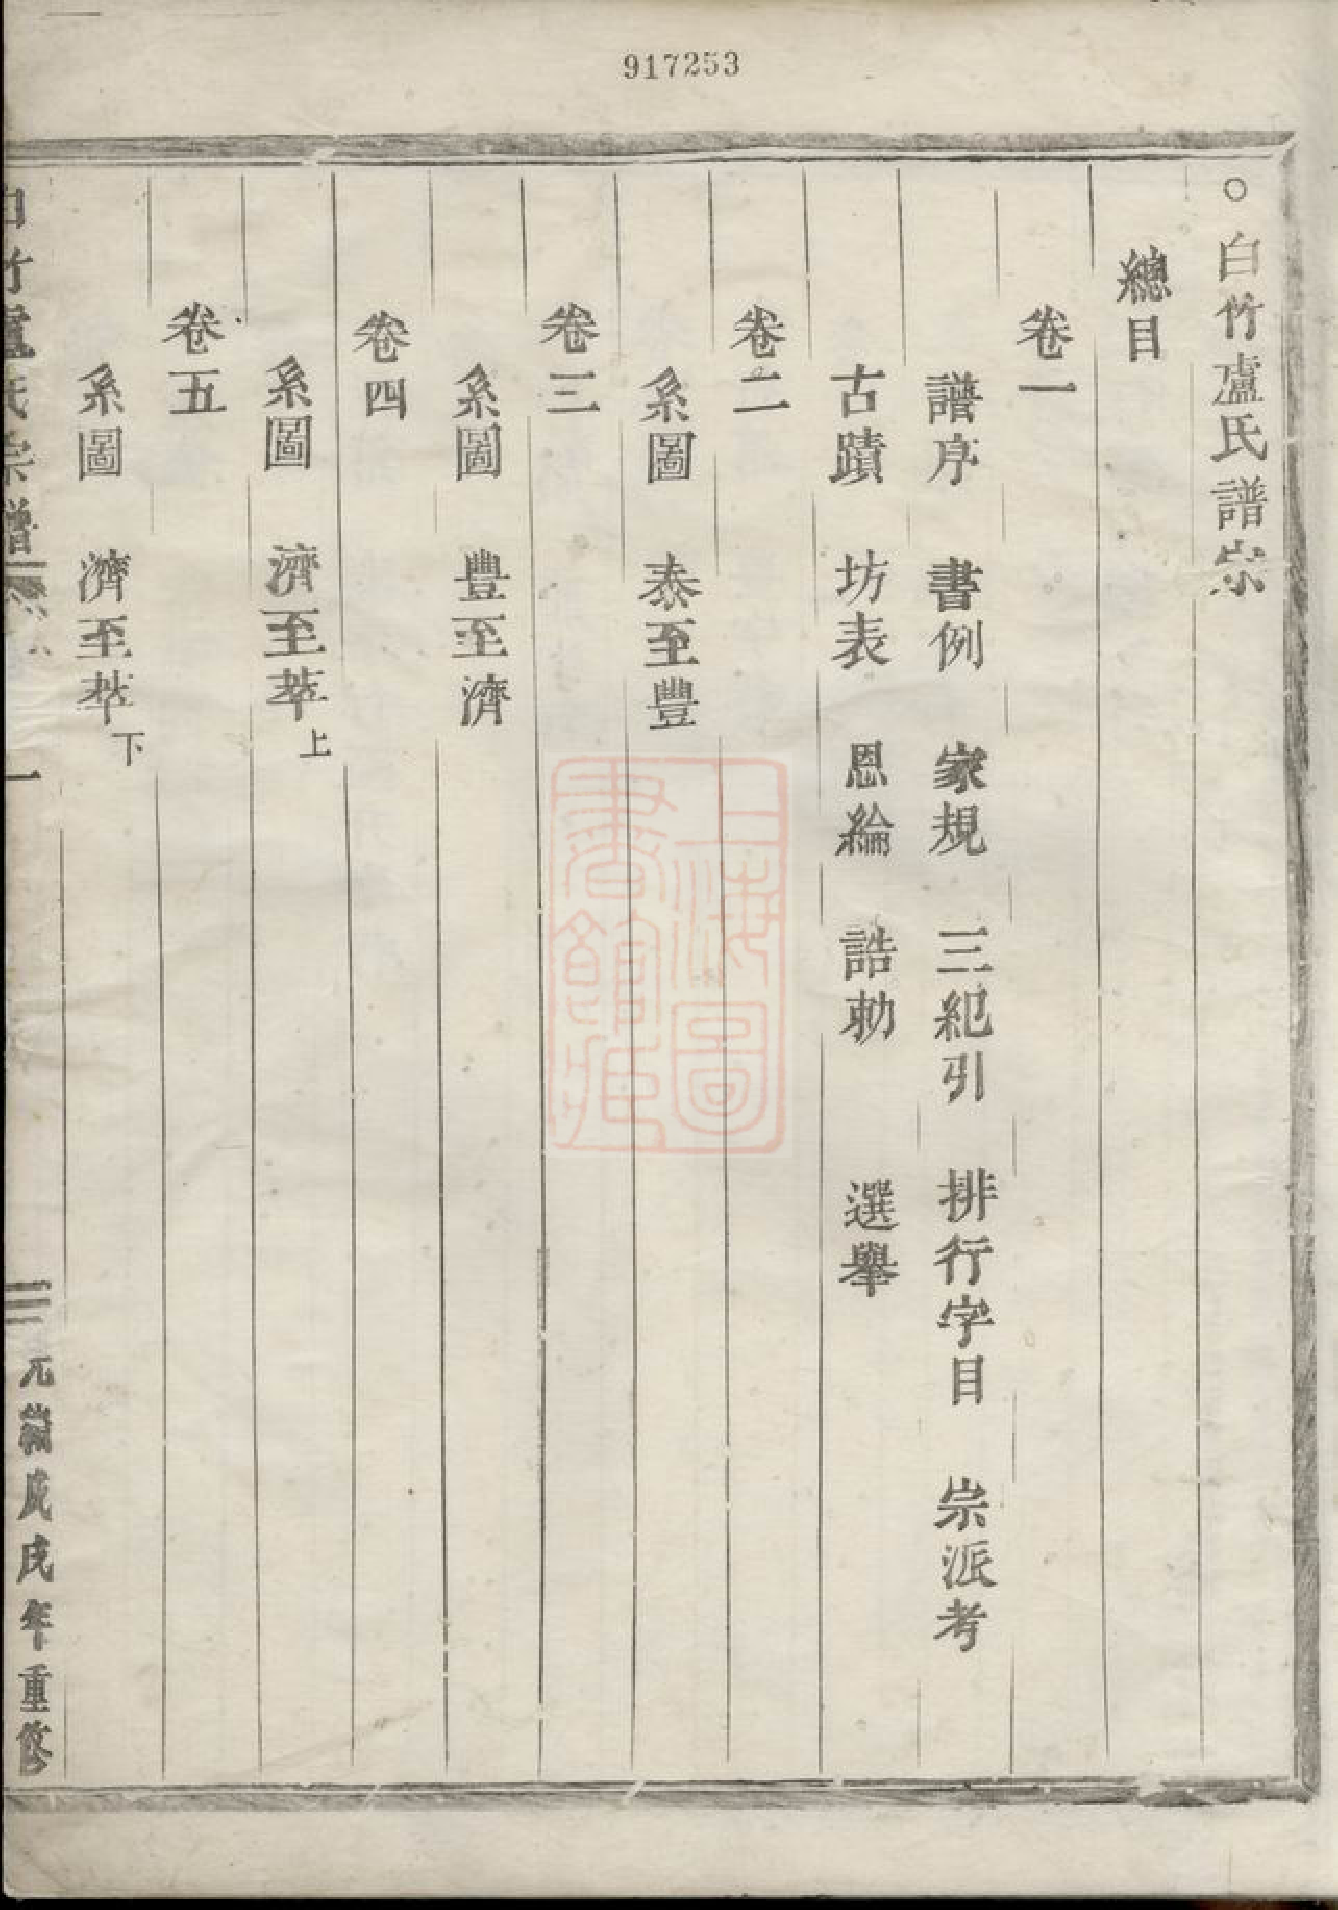 917253
○白竹盧氏譜宗
總目
卷一
譜序 書例 家規 三紀引 排行字目 宗派考
古蹟 坊表 恩綸 誥勅 選舉
卷二
系圖 泰至豐
卷三
系圖 豊至濟
卷四
系圖 濟至萃上
卷五
系圖 濟至萃下
白竹盧氏宗譜 一 年重修
上海圖書館藏